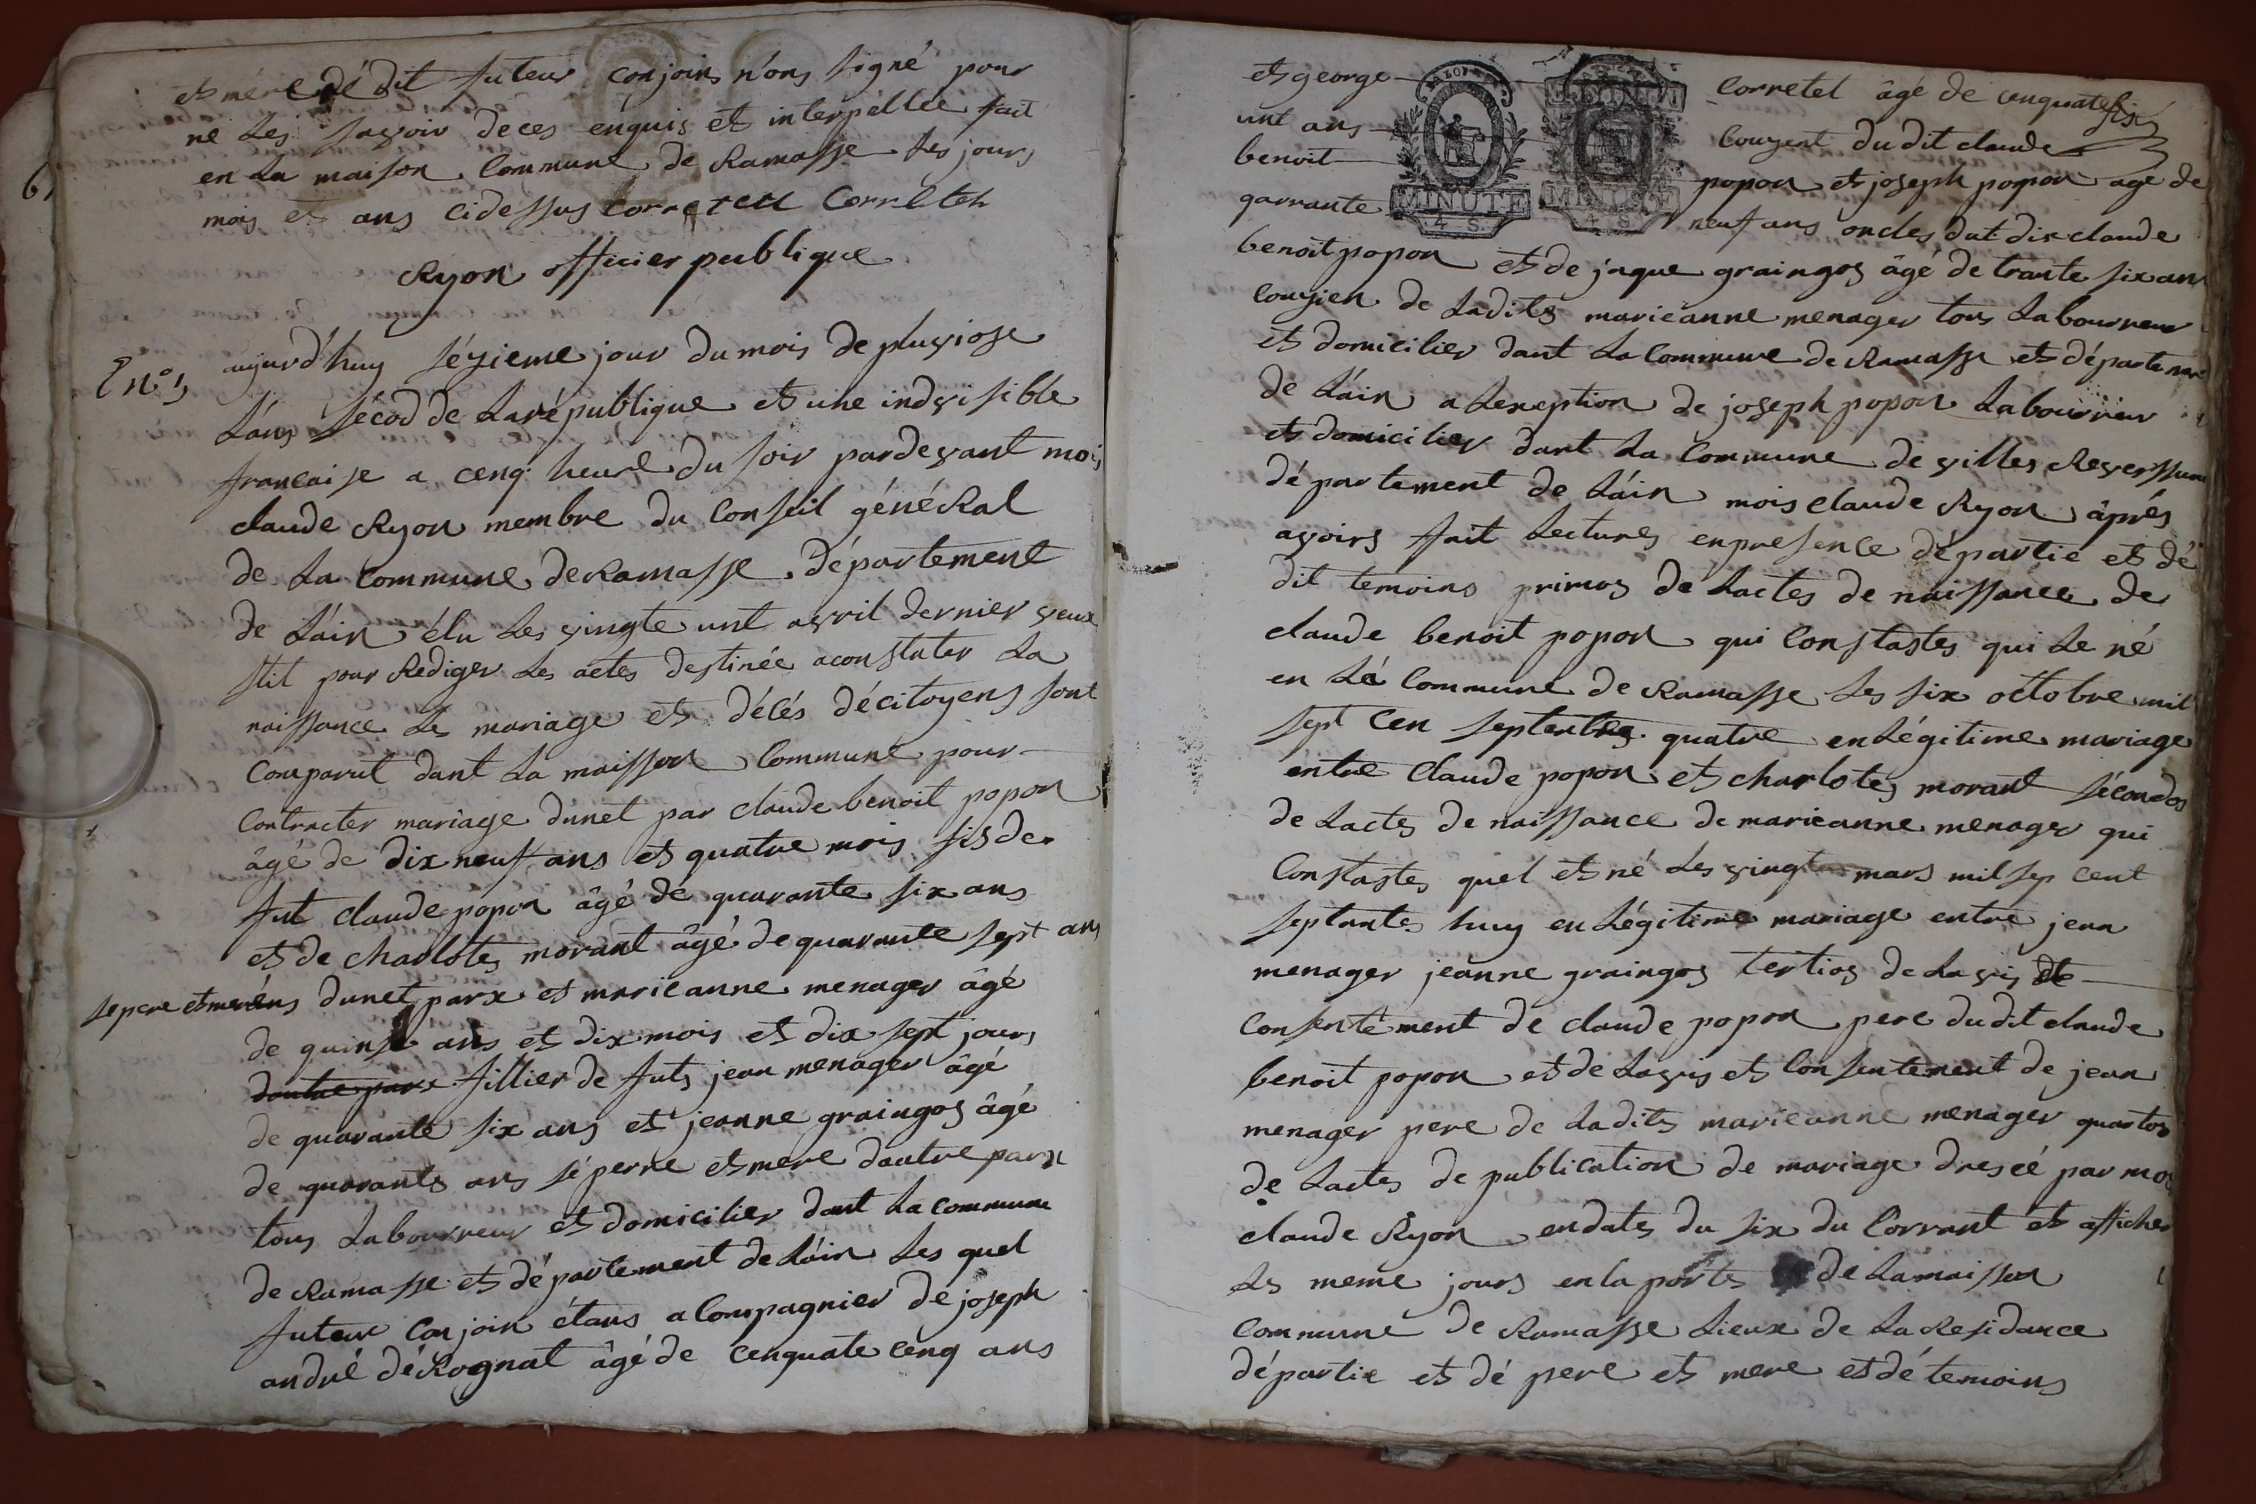 et mere dé dit futeur conjoins n'ons signé pour
ne les savoir deces enquis et interpellée fait
en La maison Commune de Ramasse Les jours
mois et ans cidessus Corretell Corretel
Ryon officier publique
6
En° 5
aujurd'huy sézieme jour du mois de pluviose
L'ans sécod de La république et une indvisible
francaise a cenq heure du soir pardevant mois
claude Ryon membre du Conseil généRal
de La Commune de Ramasse département
de Láin élu Les vingte unt avril dernier
stit pour Rediger Les actes destinée a constater La
naissance Le mariage et délés décitoyens sont
Comparut dant La maisson Commune pour
Contracter mariage dunet par claude benoit popon
âgé de dix neuf ans et quatre mois fis de
fut claude popon âgé dé quarante six ans
et de charlotes morant âgé de quarante sept ans
se pere et mere ens dunet parx et marieanne menager âgé
de quinse ans et dix mois et dix sept jours
doutre parx fillier de futs jean menager âgé
de quarante six ans et jeanne graingos âgé
de quarante ans sé perre et mere doutre parx
tous Labourreur et domicilier dant La commune
de Ramasse et département de Láin Les quel
futeur Conjoin étans a Compagnier de joseph
andré déRognat âgé de cenquate cenq ans
et george Corretel âgé de cenquate six
unt ans Couzent du dit claude
benoit popon et joseph popon age de
qarrante neuf ans oncles dut dit claude
LA LOI
MINUTE
4 S.
MINUTE
4 S
benoit popon et de jaque graingos âgé de trante six ans
Couzien de Ladite marieanne menager tous Labourreur
et domicilier dant La Commune de Ramasse et département
de Láin a Lexeption de joseph popon Labourreur
et domicilier dant La Commune de villes Reverssure
département de Láin mois claude Ryon âprés
avoirs fait Lectures en presence départie et dé
dit temoins primos de Lactes de naissance de
claude benoit popon qui Constastes qui Le né
en Lá Commune de Ramasse Les six octobre mil
sept Cen septentes quatre en Légitime mariage
entre Claude popon et charlotes morant sécondos
de Lactes de naissance de marieanne menager qui
Constastes quel et né Les vingt mars mil sep cent
septantes huy en Légitime mariage entre jean
menager jeanne graingos tertios de La vis et
Consentement de claude popon pere du dit claude
benoit popon et de La vis et Consentement de jean
menager pere de Ladites marieanne menager quartos
de Lactes de publication de mariage dreséé par mois
claude Ryon endates du six du Corrant et afficher
Les meme jours en la portes de La maisson
Commune de Ramasse Lieux de La Residance
départie et dé pere et mere et dé temoins